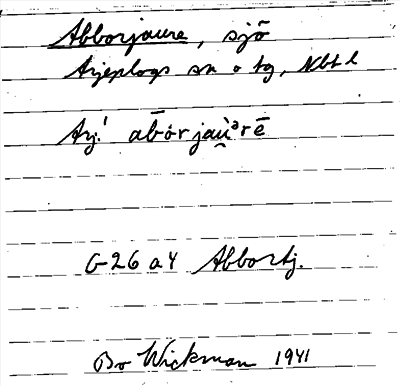 Abborjaure, sjö
Arjeplogs sn o tg, Nbt l
Arj.
G-26 a4 Abbortj.
Bo Wickman 1941